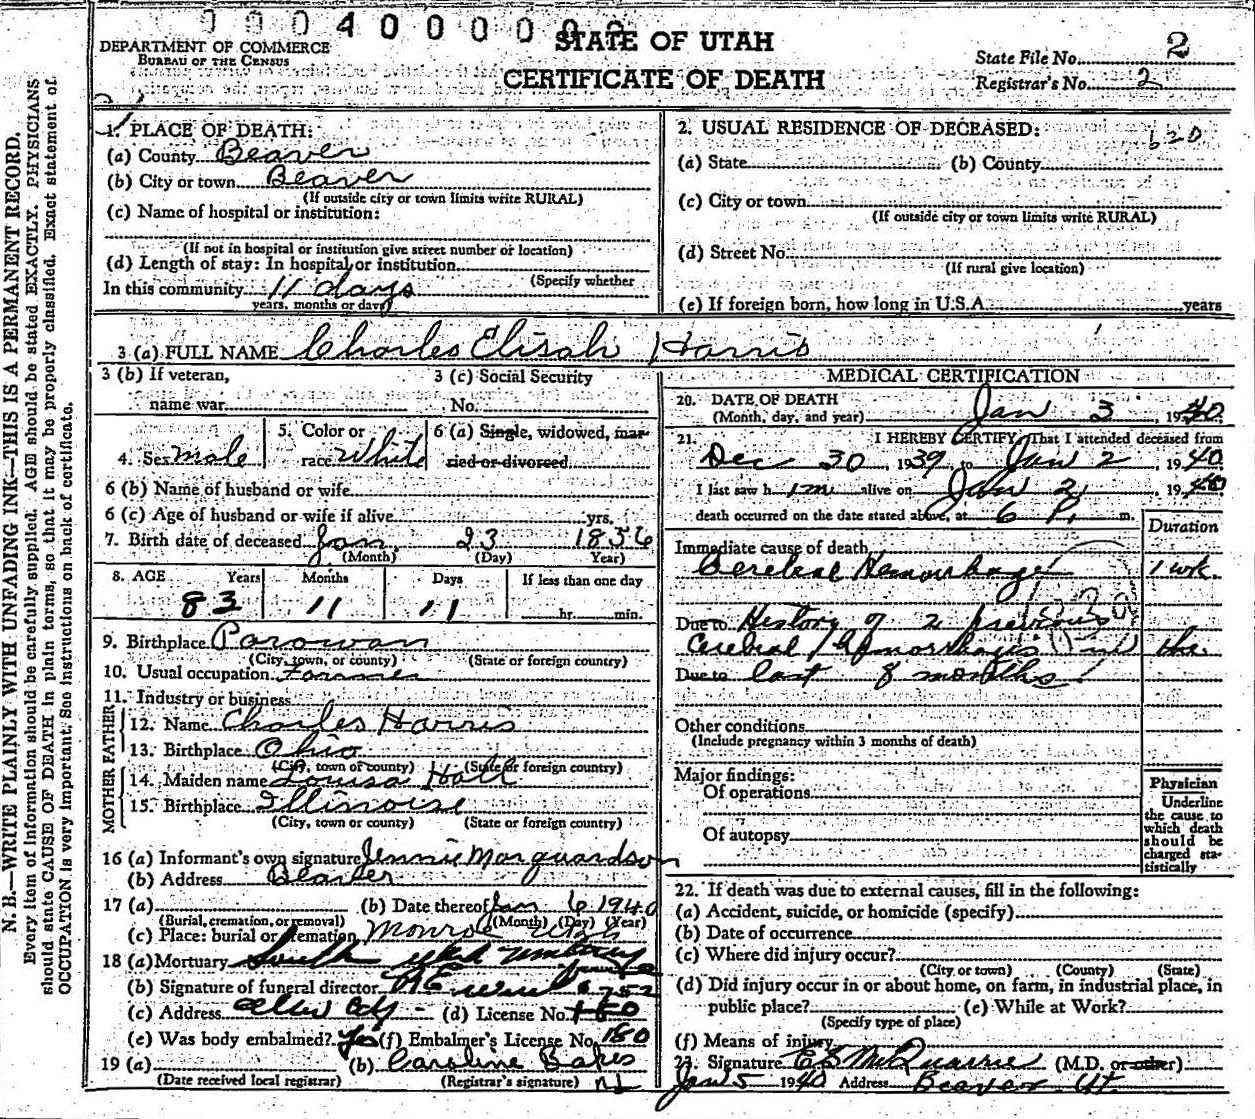 0 0 0 4 0 0 0 0 0 2
DEPARTMENT OF COMMERCE
BUREAU OF THE CENSUS
STATE OF UTAH
CERTIFICATE OF DEATH
State File No. 2
Registrar's No. 2
N. B.—WRITE PLAINLY WITH UNFADING INK—THIS IS A PERMANENT RECORD.
Every item of information should be carefully supplied. AGE should be stated EXACTLY. PHYSICIANS
should state CAUSE OF DEATH in plain terms, so that it may be properly classified. Exact statement of
OCCUPATION is very important. See instructions on back of certificate.
1. PLACE OF DEATH:
(a) County Beaver
(b) City or town Beaver
(If outside city or town limits write RURAL)
(c) Name of hospital or institution:
(If not in hospital or institution give street number or location)
(d) Length of stay: In hospital or institution
(Specify whether
In this community 11 days
years, months or days)
2. USUAL RESIDENCE OF DECEASED: 620
(a) State (b) County
(c) City or town
(If outside city or town limits write RURAL)
(d) Street No.
(If rural give location)
(e) If foreign born, how long in U.S.A. years
3 (a) FULL NAME Charles Elisah Harris
3 (b) If veteran, name war
3 (c) Social Security No.
4. Sex male
5. Color or race White
6 (a) Single, widowed, married or divorced
6 (b) Name of husband or wife
6 (c) Age of husband or wife if alive yrs.
7. Birth date of deceased Jan 23 1856
(Month) (Day) Year)
8. AGE Years Months Days If less than one day
83 11 11 hr. min.
9. Birthplace Parowan
(City, town, or county) (State or foreign country)
10. Usual occupation Farmer
11. Industry or business
FATHER
12. Name Charles Harris
13. Birthplace Ohio
(City, town of county) (State or foreign country)
MOTHER
14. Maiden name Louisa Hall
15. Birthplace Illinoise
(City, town or county) (State or foreign country)
16 (a) Informant's own signature Jennie Marquardson
(b) Address Beaver
17 (a) (b) Date thereof Jan 6 1940
(Burial, cremation, or removal) (Month) (Day) (Year)
(c) Place: burial or cremation Monroe Utah
18 (a) Mortuary South
(b) Signature of funeral director
(c) Address (d) License No.
(e) Was body embalmed? Yes (f) Embalmer's License No. 180
19 (a) (b) Caroline Bakes
(Date received local registrar) (Registrar's signature)
MEDICAL CERTIFICATION
20. DATE OF DEATH
(Month, day, and year) Jan 3 1940
21. I HEREBY CERTIFY, That I attended deceased from
Dec 30, 1939 to Jan 2, 1940
I last saw h im alive on Jan 2, 1940
death occurred on the date stated above, at 6 P. m.
Duration
Immediate cause of death
Cerebral Hemorrhage 1 wk.
Due to History of 2 previous
Cerebral Hemorrhages in the
Due to last 8 months
Other conditions
(Include pregnancy within 3 months of death)
Major findings:
Of operations
Of autopsy
Physician
Underline
the cause to
which death
should be
charged sta-
tistically
22. If death was due to external causes, fill in the following:
(a) Accident, suicide, or homicide (specify)
(b) Date of occurrence
(c) Where did injury occur?
(City or town) (County) (State)
(d) Did injury occur in or about home, on farm, in industrial place, in
public place? (e) While at Work?
(Specify type of place)
(f) Means of injury
23. Signature E S McQuarrie (M.D. or other)
Jan 5 1940 Address Beaver Ut.